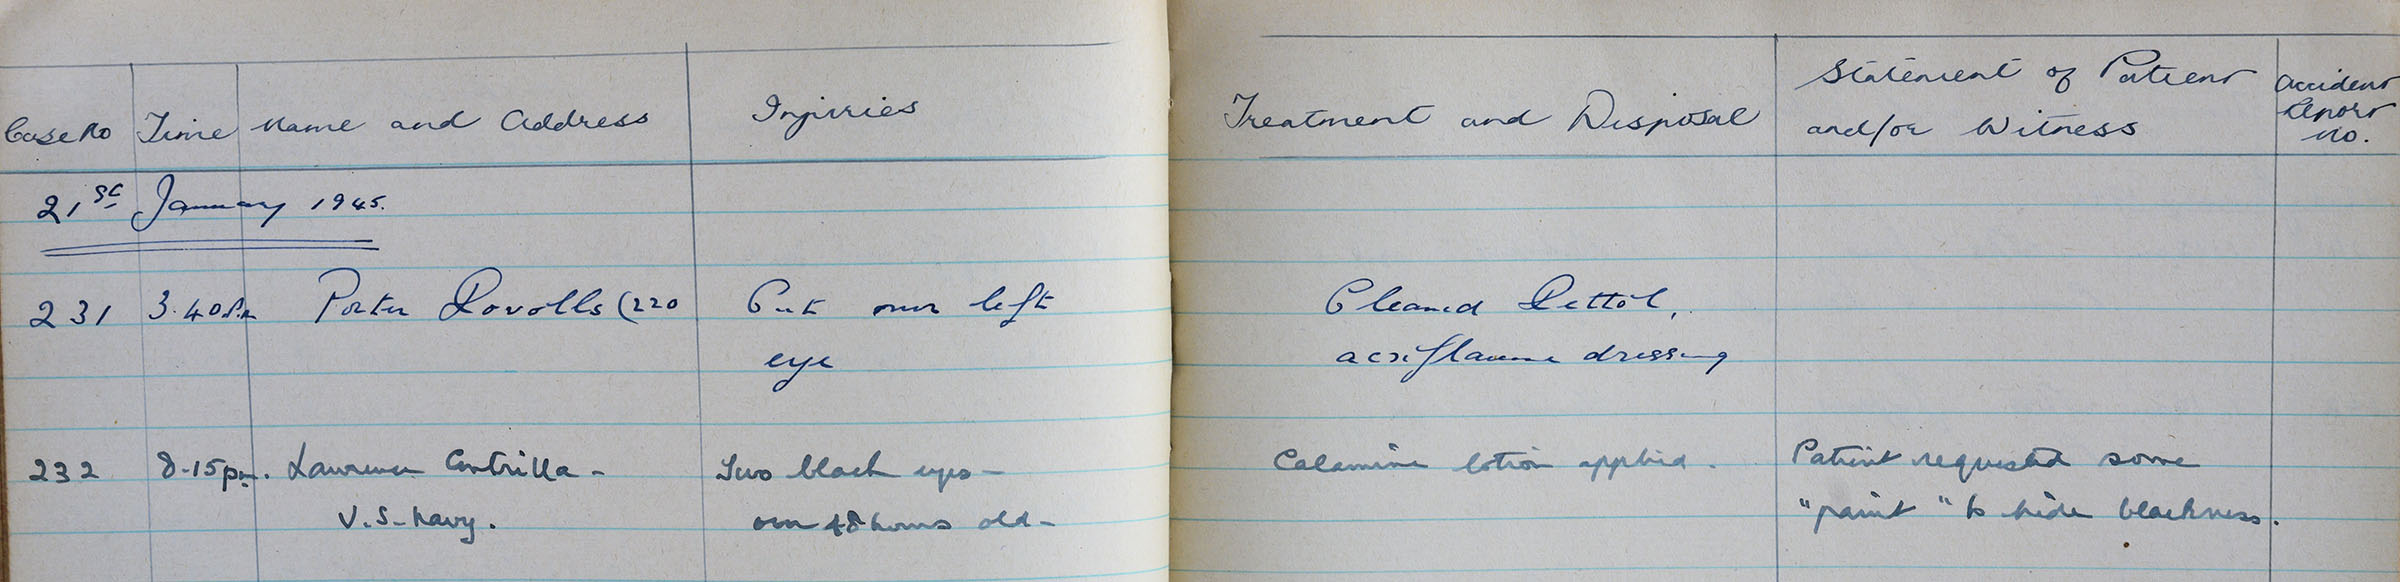 Case No Time Name and Address Injuries Treatment and Disposal Statement of Patient and/or Witness Accident Report No.
21st January 1945.
231 3.40 p.m Porter Rovolls (220 Cut over left Cleaned Dettol,
eye acriflavine dressing
232 8-15pm. Laurence Contrilla - Two black eyes - Calamine lotion applied. Patient requested some
U.S. Navy. over 48 hours old - "paint" to hide blackness.